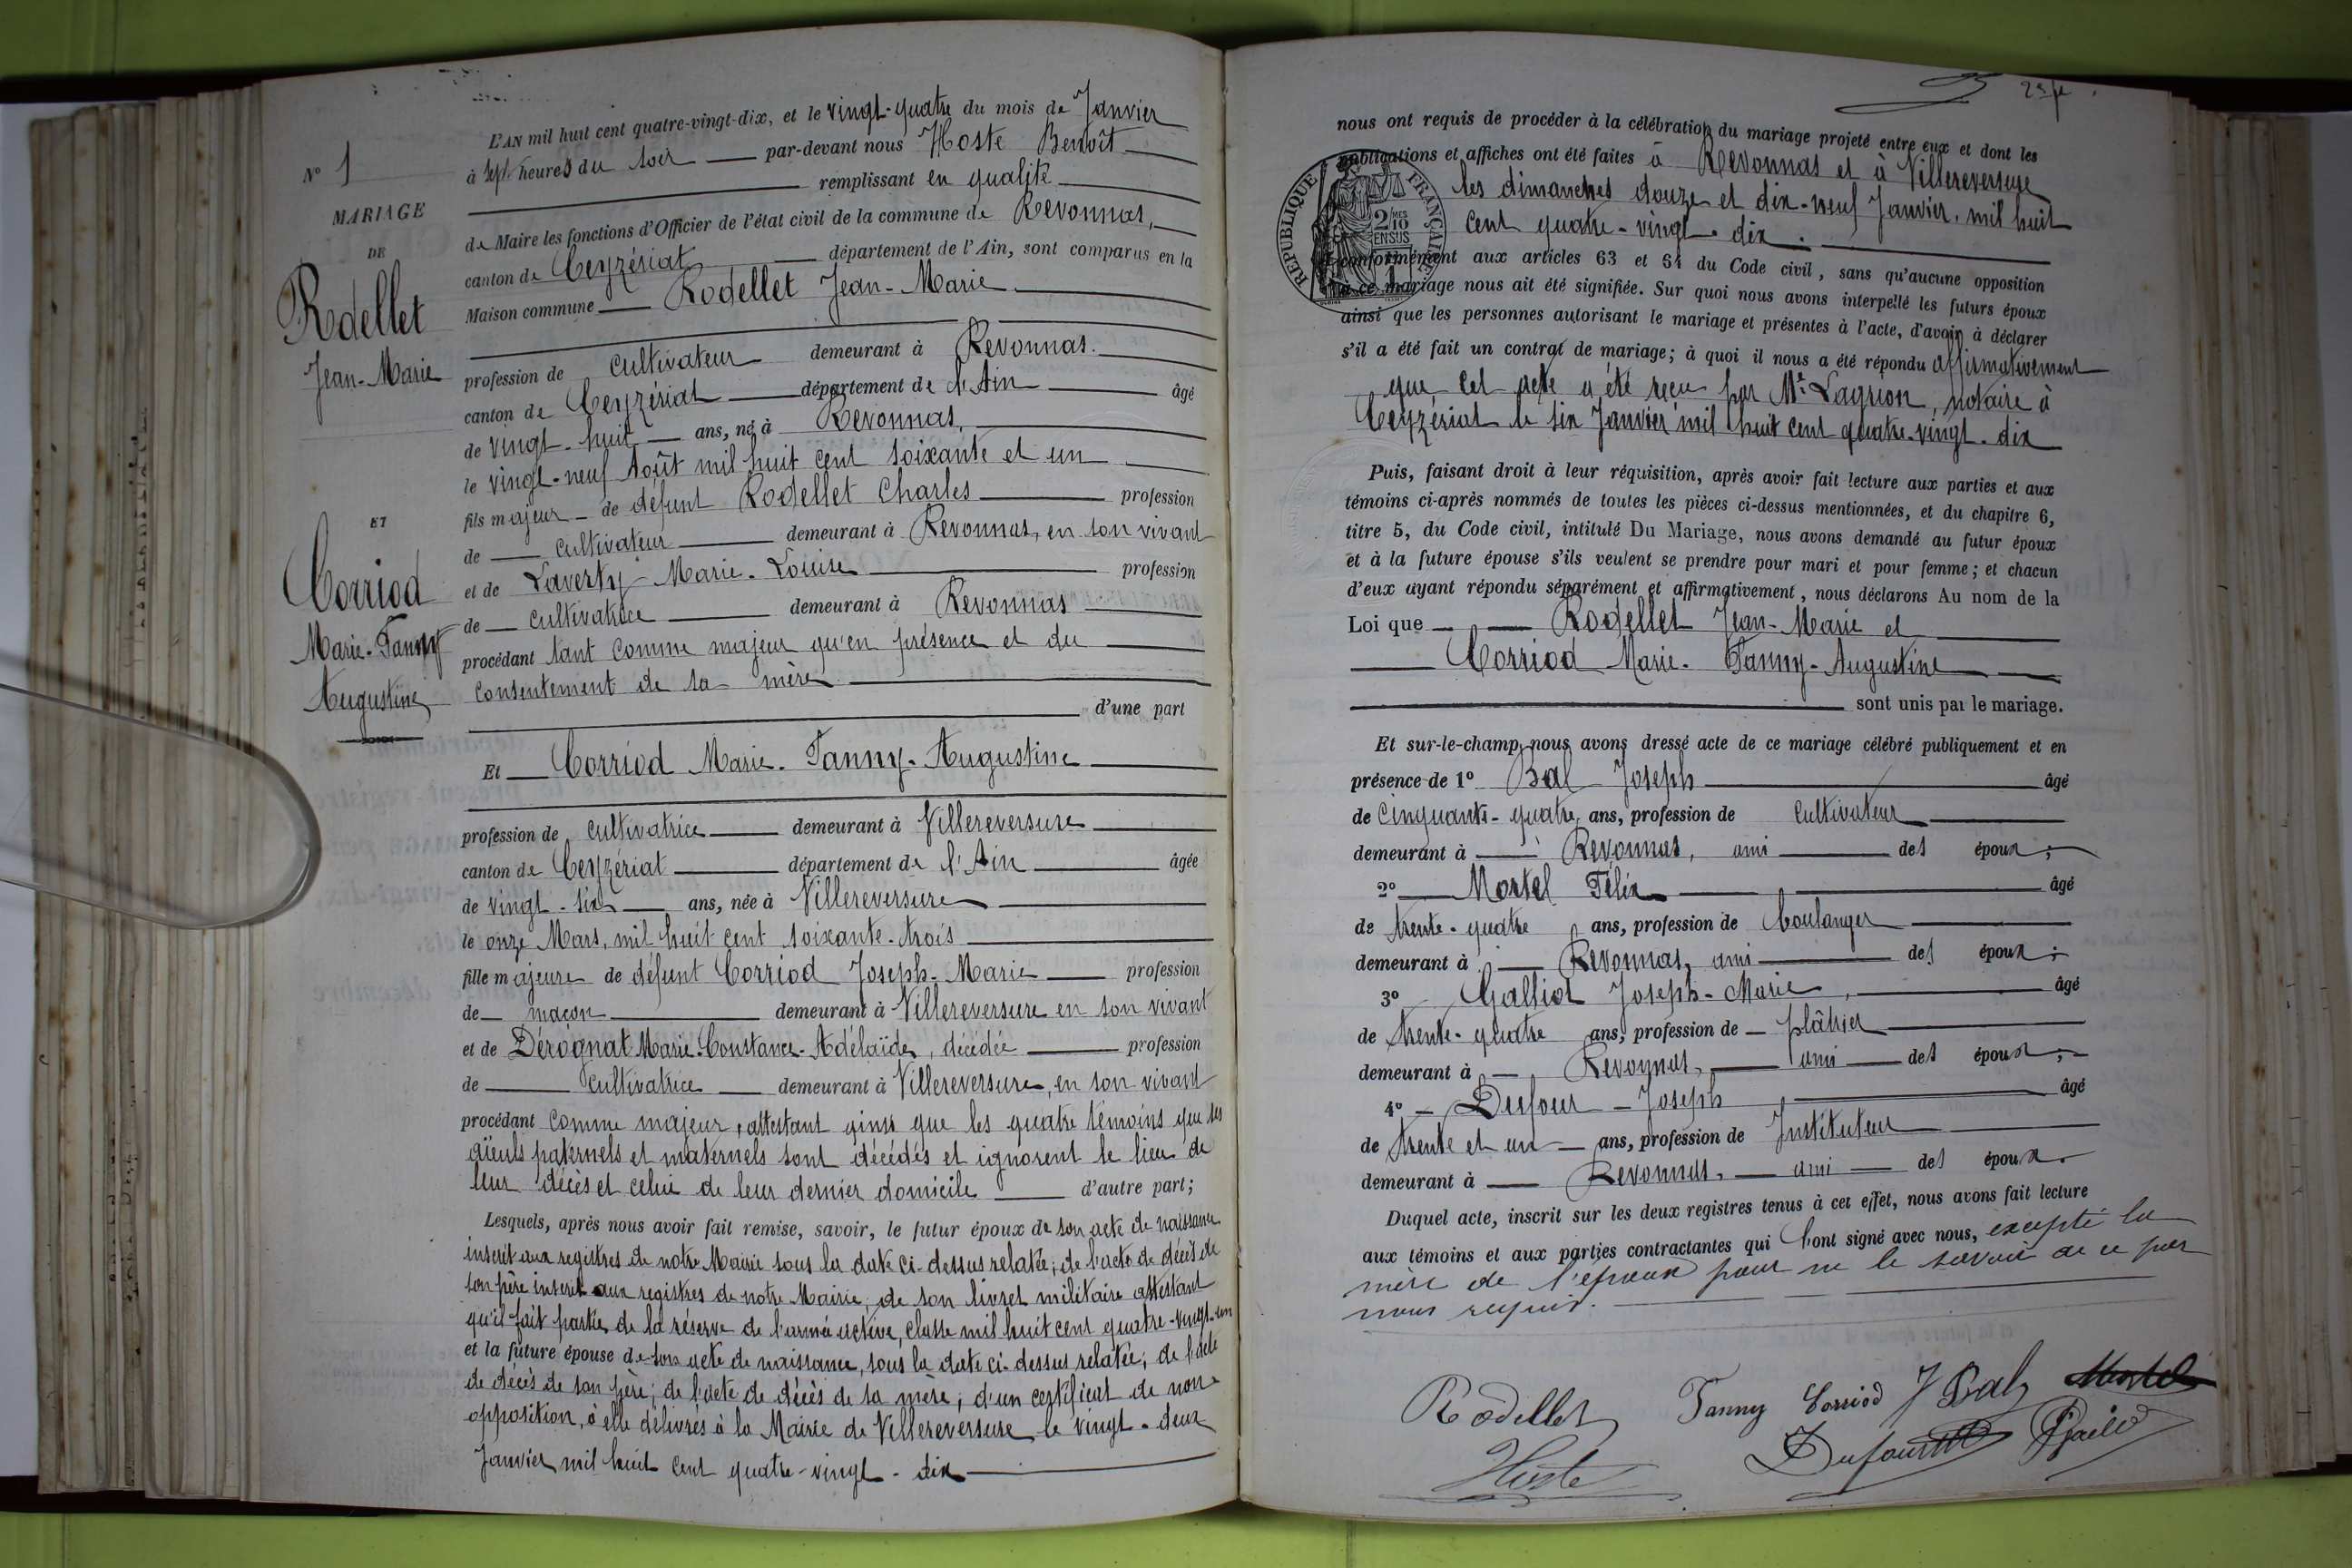 N° 1
MARIAGE
DE
Rodellet
Jean-Marie
ET
Corriod
Marie-Fanny
Augustine
L'AN mil huit cent quatre-vingt-dix, et le vingt-quatre du mois de Janvier
à sept heures du soir par-devant nous Hoste Benoît
remplissant en qualité
de Maire les fonctions d'Officier de l'état civil de la commune de Revonnas,
canton de Ceyzériat département de l'Ain, sont comparus en la
Maison commune Rodellet Jean-Marie
profession de cultivateur demeurant à Revonnas.
canton de Ceyzériat département de l'Ain âgé
de vingt-huit ans, né à Revonnas,
le vingt-neuf Août mil huit cent soixante et un
fils majeur de défunt Rodellet Charles profession
de cultivateur demeurant à Revonnas, en son vivant
et de Laverty Marie-Louise profession
de cultivatrice demeurant à Revonnas
procédant tant comme majeur qu'en présence et du
consentement de sa mère
d'une part
Et Corriod Marie-Fanny-Augustine
profession de cultivatrice demeurant à Villereversure
canton de Ceyzériat département de l'Ain âgée
de vingt-six ans, née à Villereversure
le onze Mars, mil huit cent soixante-trois
fille majeure de défunt Corriod Joseph-Marie profession
de maçon demeurant à Villereversure en son vivant
et de Dérognat Marie-Constance-Adélaïde, décédée profession
de cultivatrice demeurant à Villereversure, en son vivant
procédant comme majeur, attestant ainsi que les quatre témoins que ses
aïeuls paternels et maternels sont décédés et ignorent le lieu de
leur décès et celui de leur dernier domicile d'autre part;
Lesquels, après nous avoir fait remise, savoir, le futur époux de son acte de naissance
inscrit aux registres de notre Mairie sous la date ci-dessus relatée; de l'acte de décès de
son père inscrit aux registres de notre Mairie, de son livret militaire attestant
qu'il fait partie de la réserve de l'armée active, classe mil huit cent quatre-vingt-un
et la future épouse de son acte de naissance, sous la date ci-dessus relatée; de l'acte
de décès de son père; de l'acte de décès de sa mère; d'un certificat de non-
opposition, à elle délivrés à la Mairie de Villereversure le vingt-deux
Janvier mil huit cent quatre-vingt-dix
nous ont requis de procéder à la célébration du mariage projeté entre eux et dont les
publications et affiches ont été faites à Revonnas et à Villereversure
les dimanches douze et dix-neuf Janvier, mil huit
cent quatre-vingt-dix.
RÉPUBLIQUE FRANÇAISE
2/10 MES
EN SUS
conformément aux articles 63 et 64 du Code civil, sans qu'aucune opposition
à ce mariage nous ait été signifiée. Sur quoi nous avons interpellé les futurs époux
ainsi que les personnes autorisant le mariage et présentes à l'acte, d'avoir à déclarer
s'il a été fait un contrat de mariage; à quoi il nous a été répondu affirmativement
que cet acte a été reçu par Me Lagrion, notaire à
Ceyzériat le six Janvier mil huit cent quatre-vingt-dix
Puis, faisant droit à leur réquisition, après avoir fait lecture aux parties et aux
témoins ci-après nommés de toutes les pièces ci-dessus mentionnées, et du chapitre 6,
titre 5, du Code civil, intitulé Du Mariage, nous avons demandé au futur époux
et à la future épouse s'ils veulent se prendre pour mari et pour femme; et chacun
d'eux ayant répondu séparément et affirmativement, nous déclarons Au nom de la
Loi que Rodellet Jean-Marie et
Corriod Marie-Fanny-Augustine
sont unis par le mariage.
Et sur-le-champ nous avons dressé acte de ce mariage célébré publiquement et en
présence de 1° Bal Joseph âgé
de cinquante-quatre ans, profession de cultivateur
demeurant à Revonnas, ami des époux;
2° Mortel Félix âgé
de trente-quatre ans, profession de boulanger
demeurant à Revonnas, ami des époux;
3° Galliod Joseph-Marie, âgé
de trente-quatre ans, profession de plâtrier
demeurant à Revonnas, ami des époux;
4° Dufour Joseph âgé
de trente et un ans, profession de Instituteur
demeurant à Revonnas, ami des époux.
Duquel acte, inscrit sur les deux registres tenus à cet effet, nous avons fait lecture
aux témoins et aux parties contractantes qui l'ont signé avec nous, excepté la
mère de l'époux pour ne le savoir de ce par
nous requis.
Rodellet Fanny Corriod J Bal Mortel
Hoste Dufour